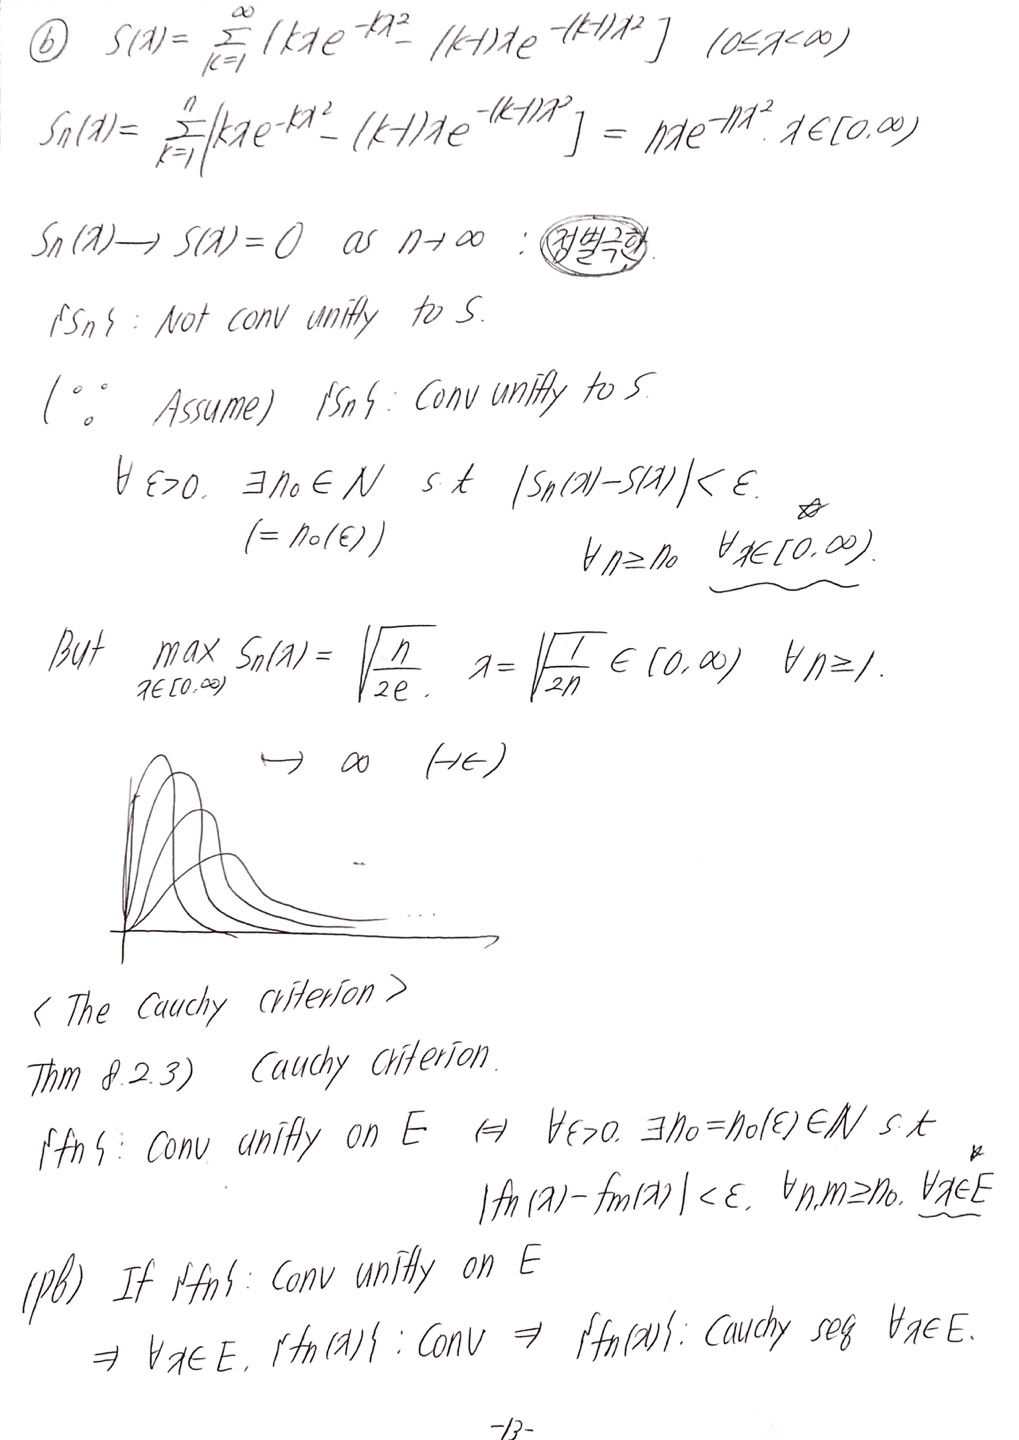 ⓑ S(x) = ∑_{k=1}^{∞} [kxe^{-kx²} - (k-1)xe^{-(k-1)x²}] (0≤x<∞)
Sn(x) = ∑_{k=1}^{n} [kxe^{-kx²} - (k-1)xe^{-(k-1)x²}] = nxe^{-nx²}. x∈[0,∞)
Sn(x) → S(x) = 0 as n→∞ : 점별극한.
{Sn} : Not conv unifly to S.
(∵ Assume) {Sn} : Conv unifly to S.
∀ε>0. ∃n₀∈N s.t |Sn(x)-S(x)|<ε.
(=n₀(ε)) ∀n≥n₀ ∀x∈[0,∞). ☆
But max_{x∈[0,∞)} Sn(x) = √(n/2e). x = √(1/2n) ∈ [0,∞) ∀n≥1.
↦ ∞ (→←)
...
<The Cauchy criterion>
Thm 8.2.3) Cauchy criterion.
{fn} : Conv unifly on E ⇔ ∀ε>0. ∃n₀=n₀(ε)∈N s.t
|fn(x)-fm(x)|<ε. ∀n,m≥n₀. ∀x∈E ☆
(pf) If {fn} : Conv unifly on E
⇒ ∀x∈E, {fn(x)} : Conv ⇒ {fn(x)} : Cauchy seq ∀x∈E.
-13-